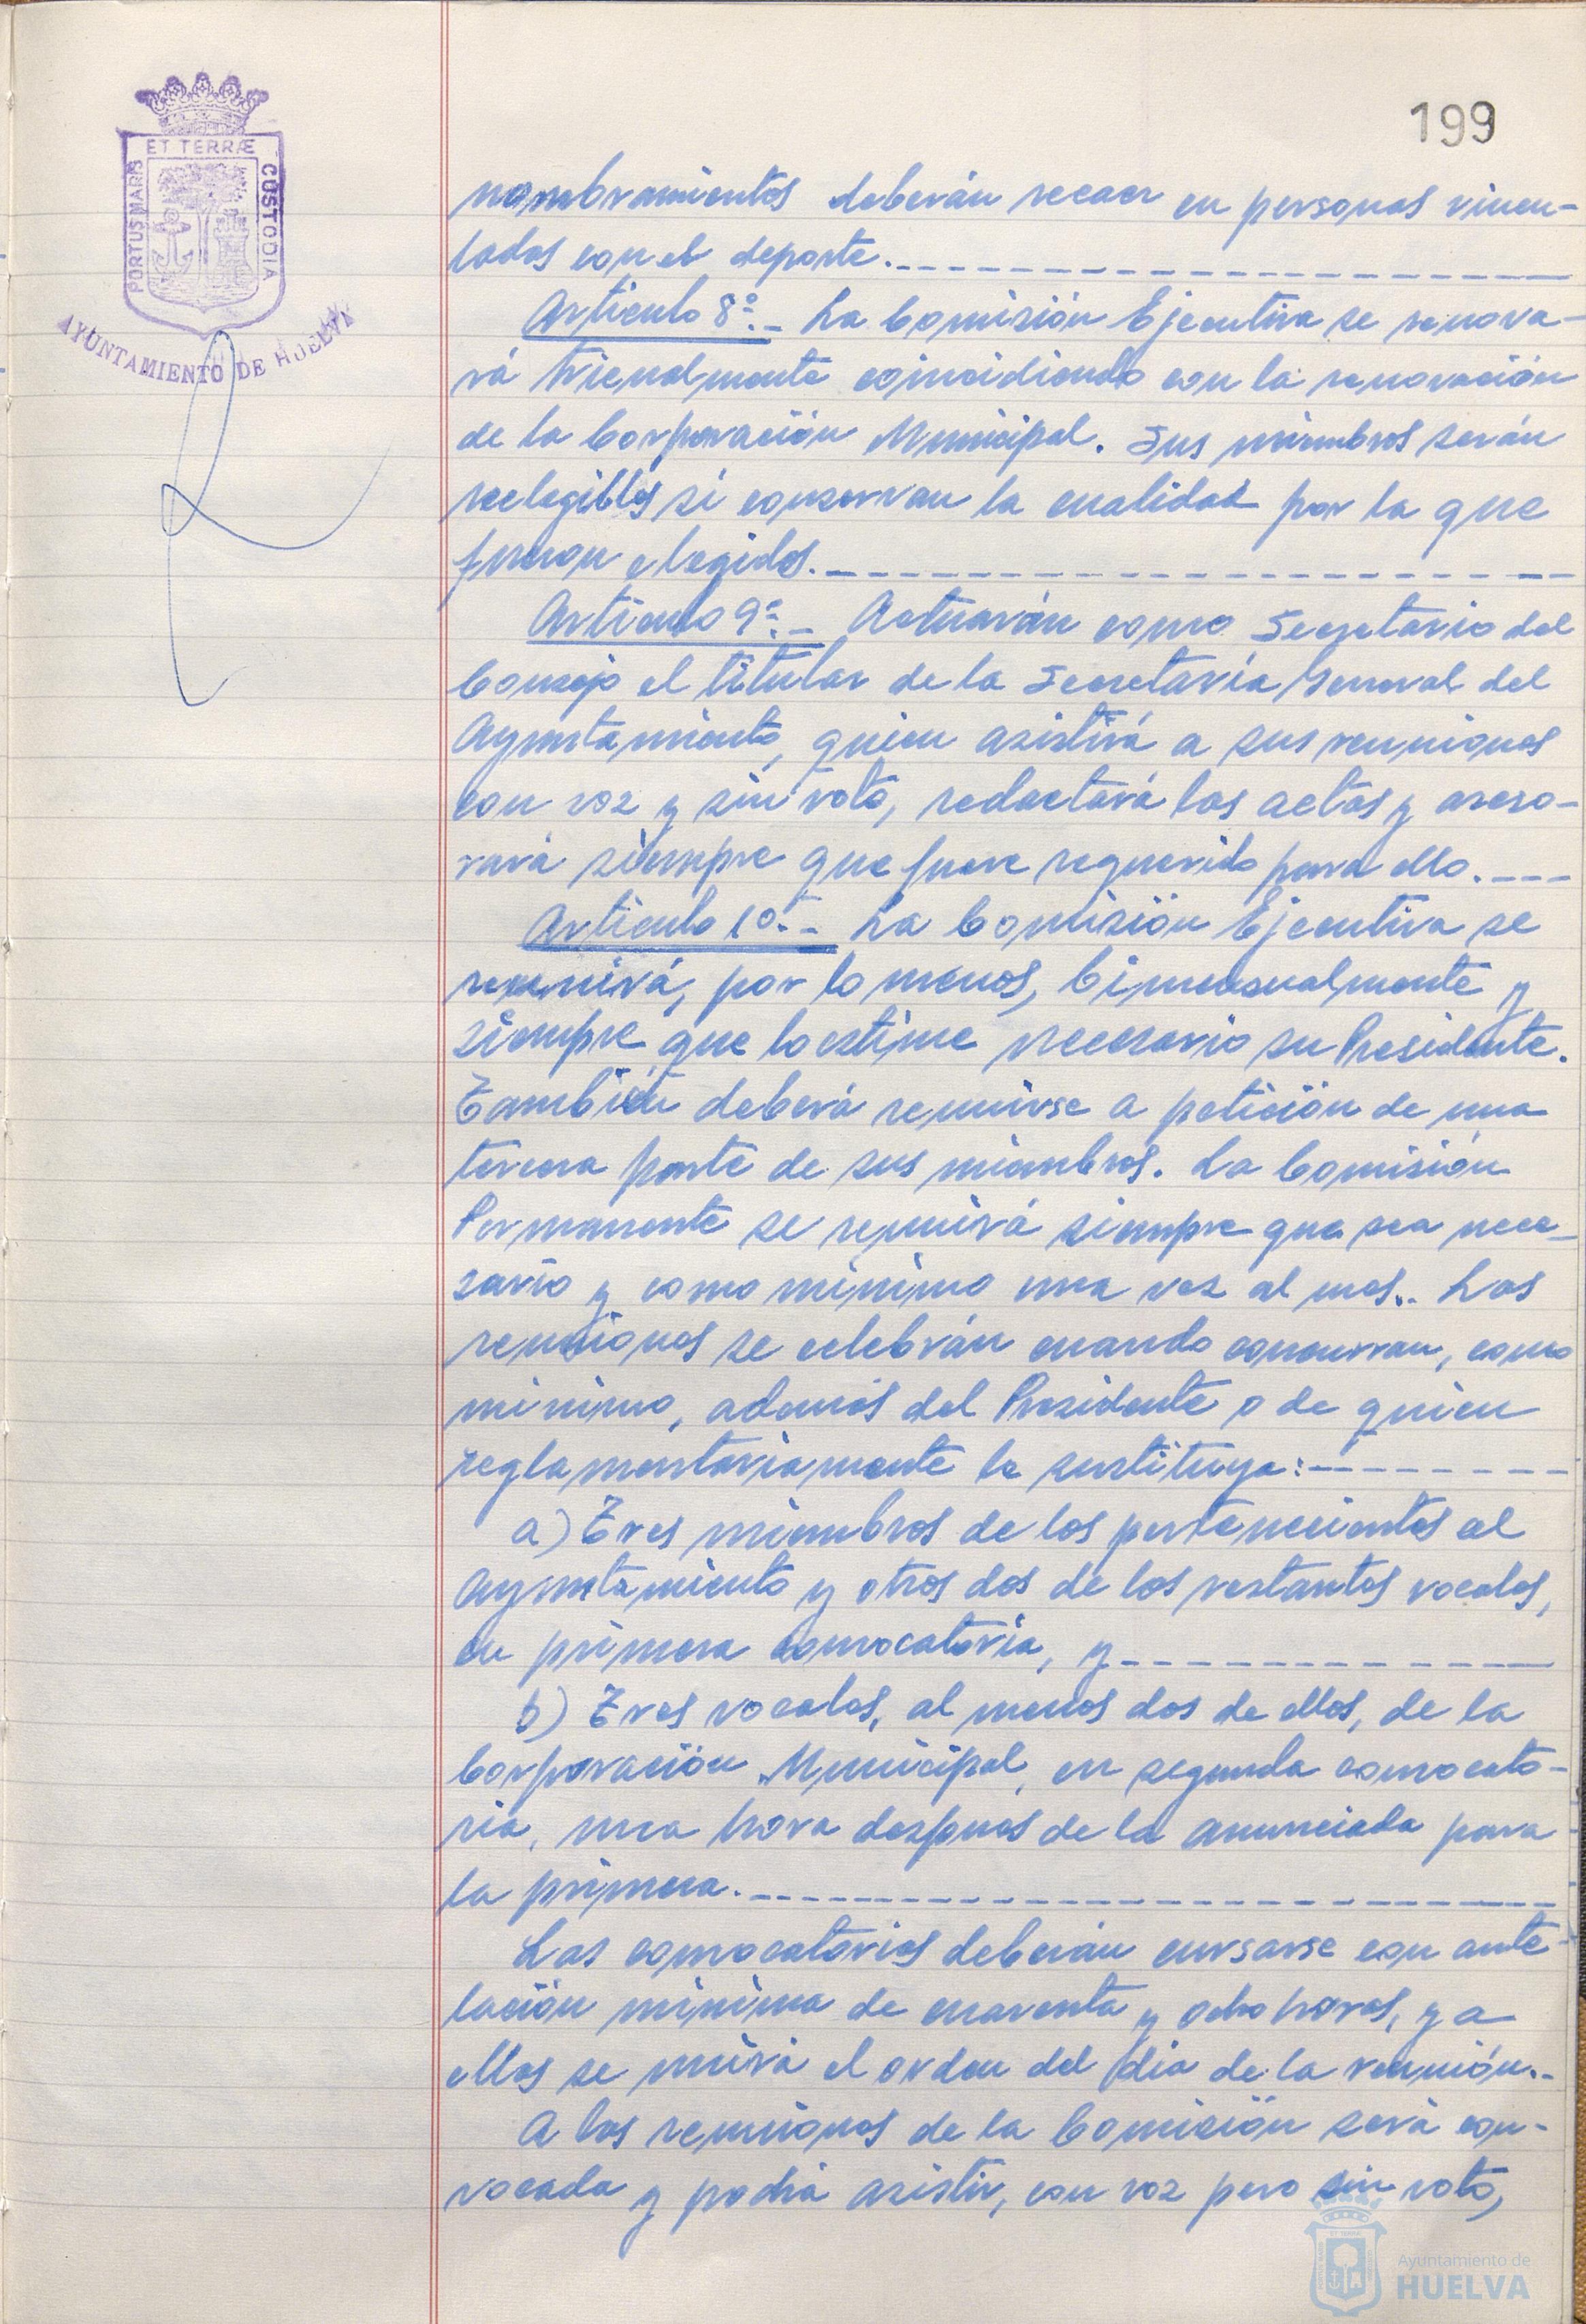 199
ET TERRÆ
PORTUS MARIS
CUSTODIA
AYUNTAMIENTO DE HUELVA
nombramientos deberán recaer en personas vincu-
ladas con el deporte.
Artículo 8º.- La Comisión Ejecutiva se renova-
rá trienalmente coincidiendo con la renovación
de la Corporación Municipal. Sus miembros serán
reelegibles si conservan la cualidad por la que
fueron elegidos.
Artículo 9º.- Actuarán como Secretario del
Consejo el titular de la Secretaría General del
Ayuntamiento, quien asistirá a sus reuniones
con voz y sin voto, redactará las actas y aseso-
rará siempre que fuere requerido para ello.
Artículo 10º.- La Comisión Ejecutiva se
reunirá, por lo menos, bimensualmente y
siempre que lo estime necesario su Presidente.
También deberá reunirse a petición de una
tercera parte de sus miembros. La Comisión
Permanente se reunirá siempre que sea nece-
sario y como mínimo una vez al mes.. Las
reuniones se celebrán cuando concurran, como
mínimo, además del Presidente o de quien
reglamentariamente le sustituya:
a) Tres miembros de los pertenecientes al
Ayuntamiento y otros dos de los restantes vocales,
en primera convocatoria, y
b) Tres vocales, al menos dos de ellos, de la
Corporación Municipal, en segunda convocato-
ria, una hora después de la anunciada para
la primera.
Las convocatorias deberán cursarse con ante-
lación mínima de cuarenta y ocho horas, y a
ellas se unirá el orden del día de la reunión..
A las reuniones de la Comisión será con-
vocada y podrá asistir, con voz pero sin voto,
Ayuntamiento de
HUELVA